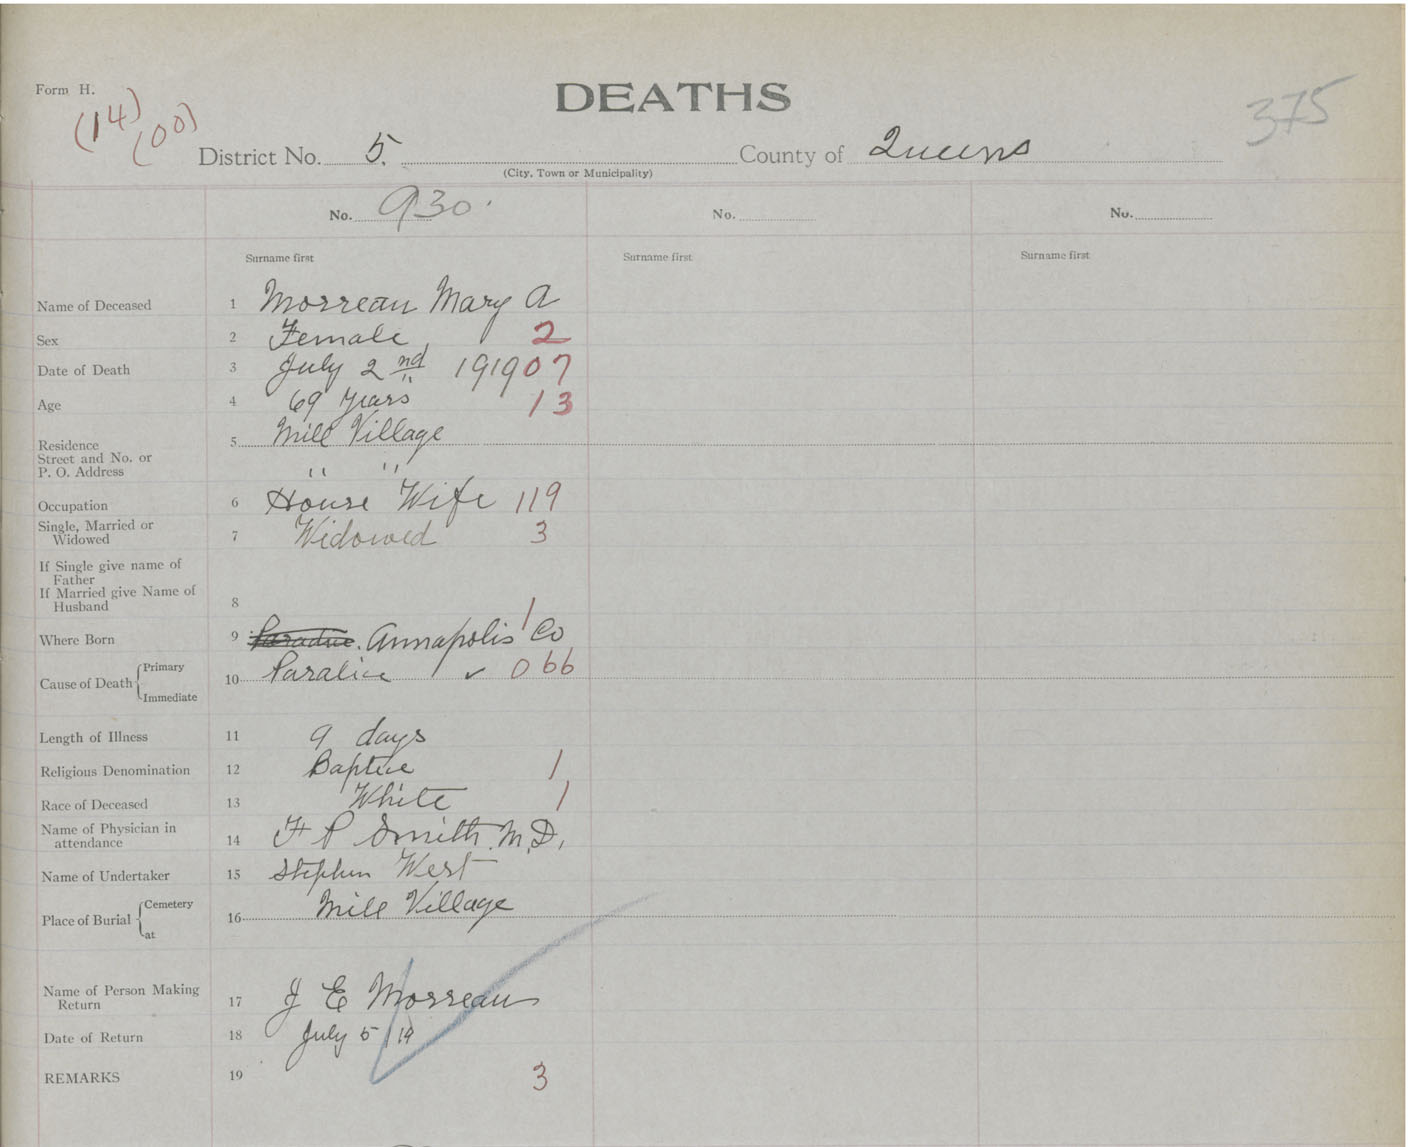 Form H.
DEATHS
375
(14)
(00)
District No. 5. County of Queens
(City, Town or Municipality)
No. 930. No. No.
Surname first Surname first Surname first
Name of Deceased 1 Morreau Mary A
Sex 2 Female 2
Date of Death 3 July 2nd 1919 07
Age 4 69 years 13
Residence 5 Mill Village
Street and No. or
P. O. Address " "
Occupation 6 House Wife 119
Single, Married or
Widowed 7 Widowed 3
If Single give name of
Father
If Married give Name of
Husband 8
1
Where Born 9 Paradise. Annapolis Co
Cause of Death { Primary
Immediate 10 Paralice ✓ 066
Length of Illness 11 9 days
Religious Denomination 12 Baptice 1
Race of Deceased 13 White 1
Name of Physician in
attendance 14 F P Smith M.D.
Name of Undertaker 15 Stephen West
Place of Burial { Cemetery
at 16 Mill Village
Name of Person Making
Return 17 J E Morreau
Date of Return 18 July 5/19
REMARKS 19 3